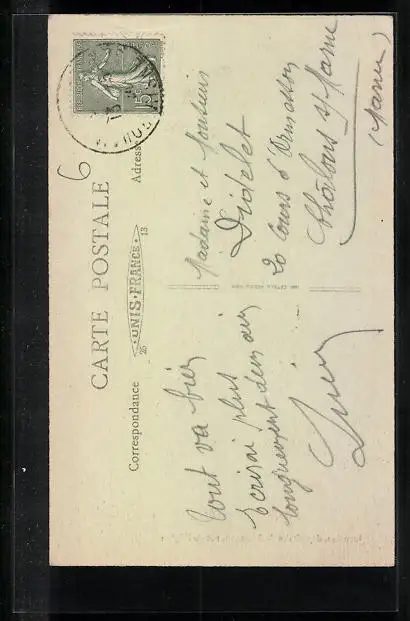 CARTE POSTALE
Correspondance
25 • UNIS•FRANCE • 13
Adresse
RÉPUBLIQUE FRANÇAISE
15c
Tout va bien
écrirai plus
longuement demain
Madame et Monsieur
Didelet
20 Cours d'Ormesson
Châlons s/ Marne
(Marne)
6